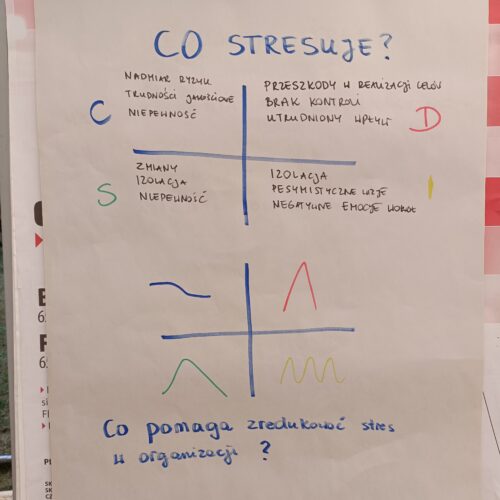 CO STRESUJE?
NADMIAR RYZYKA
TRUDNOŚCI JAKOŚCIOWE
NIEPEWNOŚĆ
C
PRZESZKODY W REALIZACJI CELÓW
BRAK KONTROLI
UTRUDNIONY WPŁYW
D
ZMIANY
IZOLACJA
NIEPEWNOŚĆ
S
IZOLACJA
PESYMISTYCZNE WIZJE
NEGATYWNE EMOCJE WOKÓŁ
I
Co pomaga zredukować stres
w organizacji ?